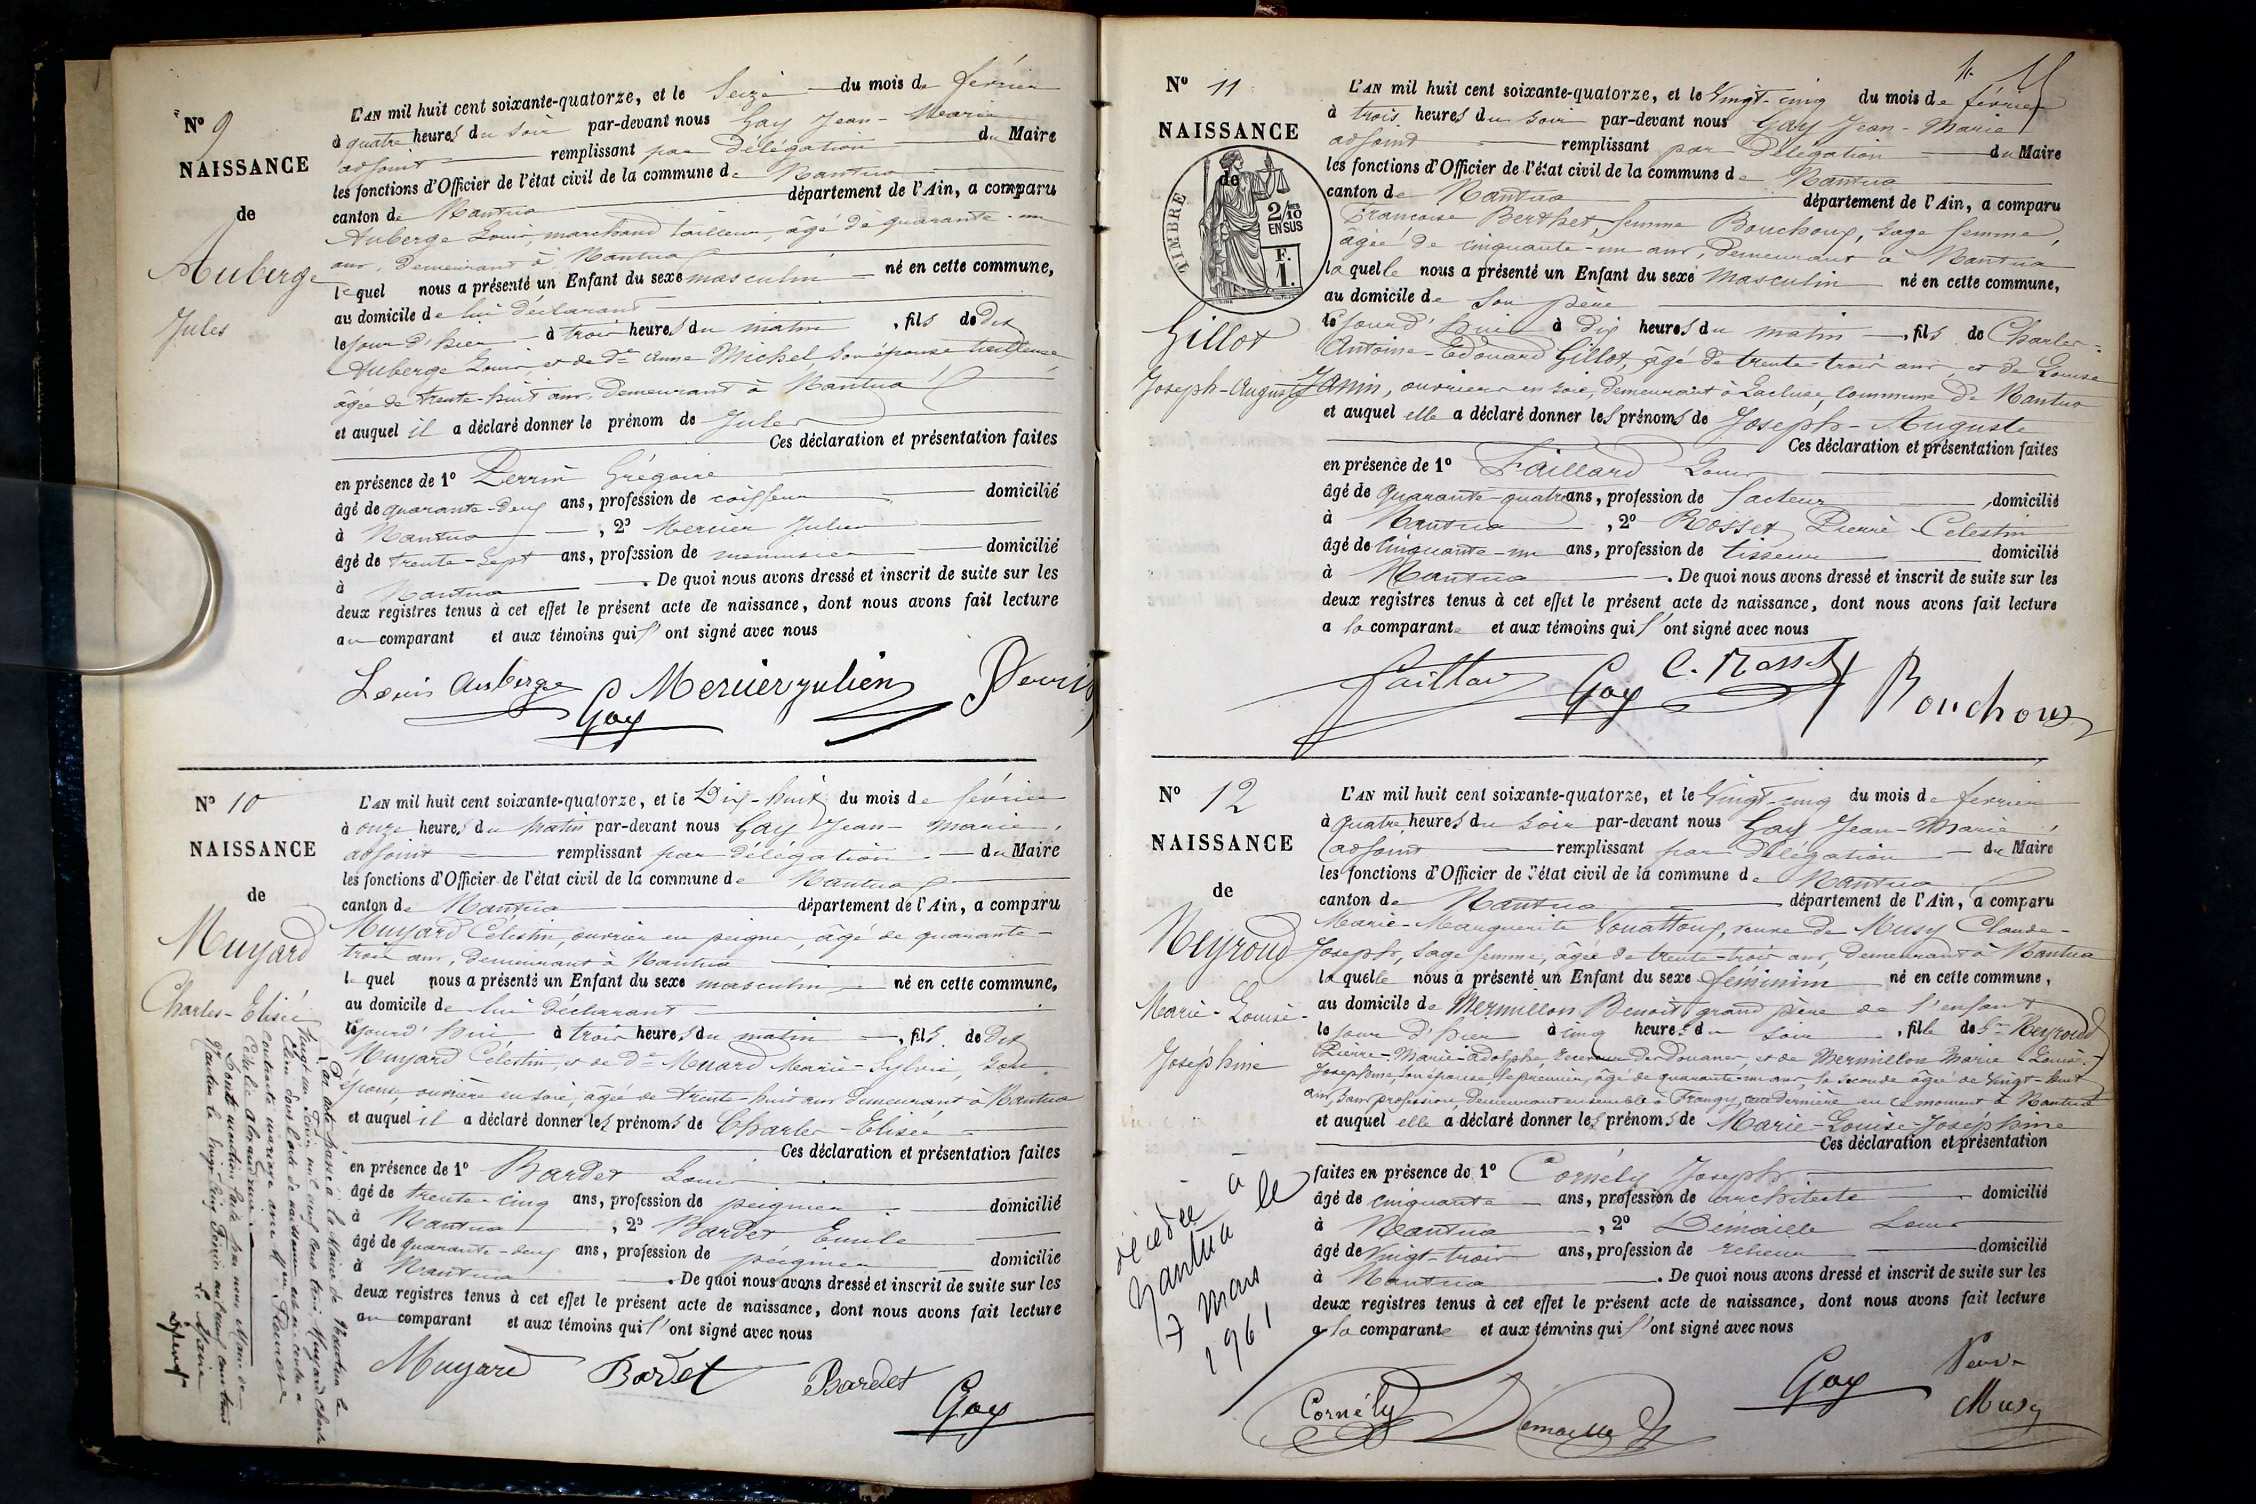 Nº 9
NAISSANCE
de
Auberge
Jules
L'AN mil huit cent soixante-quatorze, et le Seize du mois de février
à quatre heures du soir par-devant nous Gay Jean-Marie
adjoint remplissant par délégation du Maire
les fonctions d'Officier de l'état civil de la commune de Nantua
canton de Nantua département de l'Ain, a comparu
Auberge Louis, marchand tailleur, âgé de quarante-un
ans, demeurant à Nantua
lequel nous a présenté un Enfant du sexe masculin né en cette commune,
au domicile de lui déclarant
le jour d'hier à trois heures du matin, fils de dit
Auberge Louis, et de De Anne Michel, son épouse tailleuse
âgée de trente-huit ans, demeurant à Nantua
et auquel il a déclaré donner le prénom de Jules
Ces déclaration et présentation faites
en présence de 1º Perrin Grégoire
âgé de quarante-deux ans, profession de coiffeur domicilié
à Nantua, 2º Mercier Julien
âgé de trente-sept ans, profession de menuisier domicilié
à Nantua. De quoi nous avons dressé et inscrit de suite sur les
deux registres tenus à cet effet le présent acte de naissance, dont nous avons fait lecture
au comparant et aux témoins qui l'ont signé avec nous
Louis Auberge Gay Mercier julien Perrin
Nº 10
NAISSANCE
de
Muyard
Charles-Elisée
L'AN mil huit cent soixante-quatorze, et le Dix-huit du mois de février
à onze heures du matin par-devant nous Gay Jean-Marie,
adjoint remplissant par délégation du Maire
les fonctions d'Officier de l'état civil de la commune de Nantua
canton de Nantua département de l'Ain, a comparu
Muyard Célestin, ouvrier en peignes, âgé de quarante-
trois ans, demeurant à Nantua
lequel nous a présenté un Enfant du sexe masculin né en cette commune,
au domicile de lui déclarant
cejourd'hui à trois heures du matin, fils de dit
Muyard Célestin, et de De Muard Marie-Sylvie, son
épouse, ouvrière en soie, âgée de trente-huit ans demeurant à Nantua
et auquel il a déclaré donner les prénoms de Charles-Elisée
Ces déclaration et présentation faites
en présence de 1º Bardet Louis
âgé de trente-cinq ans, profession de peignier domicilié
à Nantua, 2º Bardet Emile
âgé de quarante-deux ans, profession de peignier domicilié
à Nantua. De quoi nous avons dressé et inscrit de suite sur les
deux registres tenus à cet effet le présent acte de naissance, dont nous avons fait lecture
au comparant et aux témoins qui l'ont signé avec nous
Muyard Bardet Bardet Gay
Par acte passé à la Mairie de Nantua le
vingt un Février mil neuf cent trois, Muyard Charles
Elisée dont l'acte de naissance est ci-contre a
contracté mariage avec
Cécile Alexandrine
Dont mention faite par nous Maire de
Nantua le vingt-cinq Février mil neuf cent trois
Le Maire
Nº 11
NAISSANCE
de
TIMBRE
2/10
EN SUS
F.
1.
Gillot
Joseph-Auguste
L'AN mil huit cent soixante-quatorze, et le Vingt-cinq du mois de février
à trois heures du soir par-devant nous Gay Jean-Marie
adjoint remplissant par délégation du Maire
les fonctions d'Officier de l'état civil de la commune de Nantua
canton de Nantua département de l'Ain, a comparu
Françoise Berthet, femme Bouchoux, sage femme,
âgée de cinquante-un ans, demeurant à Nantua
laquelle nous a présenté un Enfant du sexe masculin né en cette commune,
au domicile de son père
cejourd'hui à dix heures du matin, fils de Charles-
Antoine-Edouard Gillot, âgé de trente-trois ans, et de Louise
Janin, ouvriers en soie, demeurant à Lacluse, commune de Nantua
et auquel elle a déclaré donner les prénoms de Joseph-Auguste
Ces déclaration et présentation faites
en présence de 1º Faillard Louis
âgé de quarante-quatre ans, profession de facteur, domicilié
à Nantua, 2º Rosset Pierre-Celestin
âgé de cinquante-un ans, profession de tisseur domicilié
à Nantua. De quoi nous avons dressé et inscrit de suite sur les
deux registres tenus à cet effet le présent acte de naissance, dont nous avons fait lecture
a la comparante et aux témoins qui l'ont signé avec nous
Faillard Gay C. Rosset Bouchoux
Nº 12
NAISSANCE
de
Neyroud
Marie-Louise-
Joséphine
L'AN mil huit cent soixante-quatorze, et le Vingt-cinq du mois de février
à quatre heures du soir par-devant nous Gay Jean-Marie,
adjoint remplissant par délégation du Maire
les fonctions d'Officier de l'état civil de la commune de Nantua
canton de Nantua département de l'Ain, a comparu
Marie-Marguerite veuve de Musy Claude-
Joseph, sage femme, âgée de trente-trois ans, demeurant à Nantua
laquelle nous a présenté un Enfant du sexe féminin né en cette commune,
au domicile de Mermillon Benoit grand père de l'enfant
le jour d'hier à cinq heures du soir, fille de Sr Neyroud
Pierre-Marie-Adolphe, receveur des Douanes, et de Mermillon Marie-Louise-
Joséphine, son épouse, le premier, âgé de quarante-un ans, la seconde âgée de vingt-huit
ans, sans profession, demeurant ensemble à Frangy, cette dernière en ce moment à Nantua
et auquel elle a déclaré donner les prénoms de Marie-Louise-Joséphine
Ces déclaration et présentation
faites en présence de 1º Cornély Joseph
âgé de cinquante ans, profession de architecte domicilié
à Nantua, 2º Démaille Louis
âgé de vingt-trois ans, profession de relieur domicilié
à Nantua. De quoi nous avons dressé et inscrit de suite sur les
deux registres tenus à cet effet le présent acte de naissance, dont nous avons fait lecture
a la comparante et aux témoins qui l'ont signé avec nous
décédée à
Nantua le
7 Mars
1961
Cornély Demaille Gay Veuve
Musy